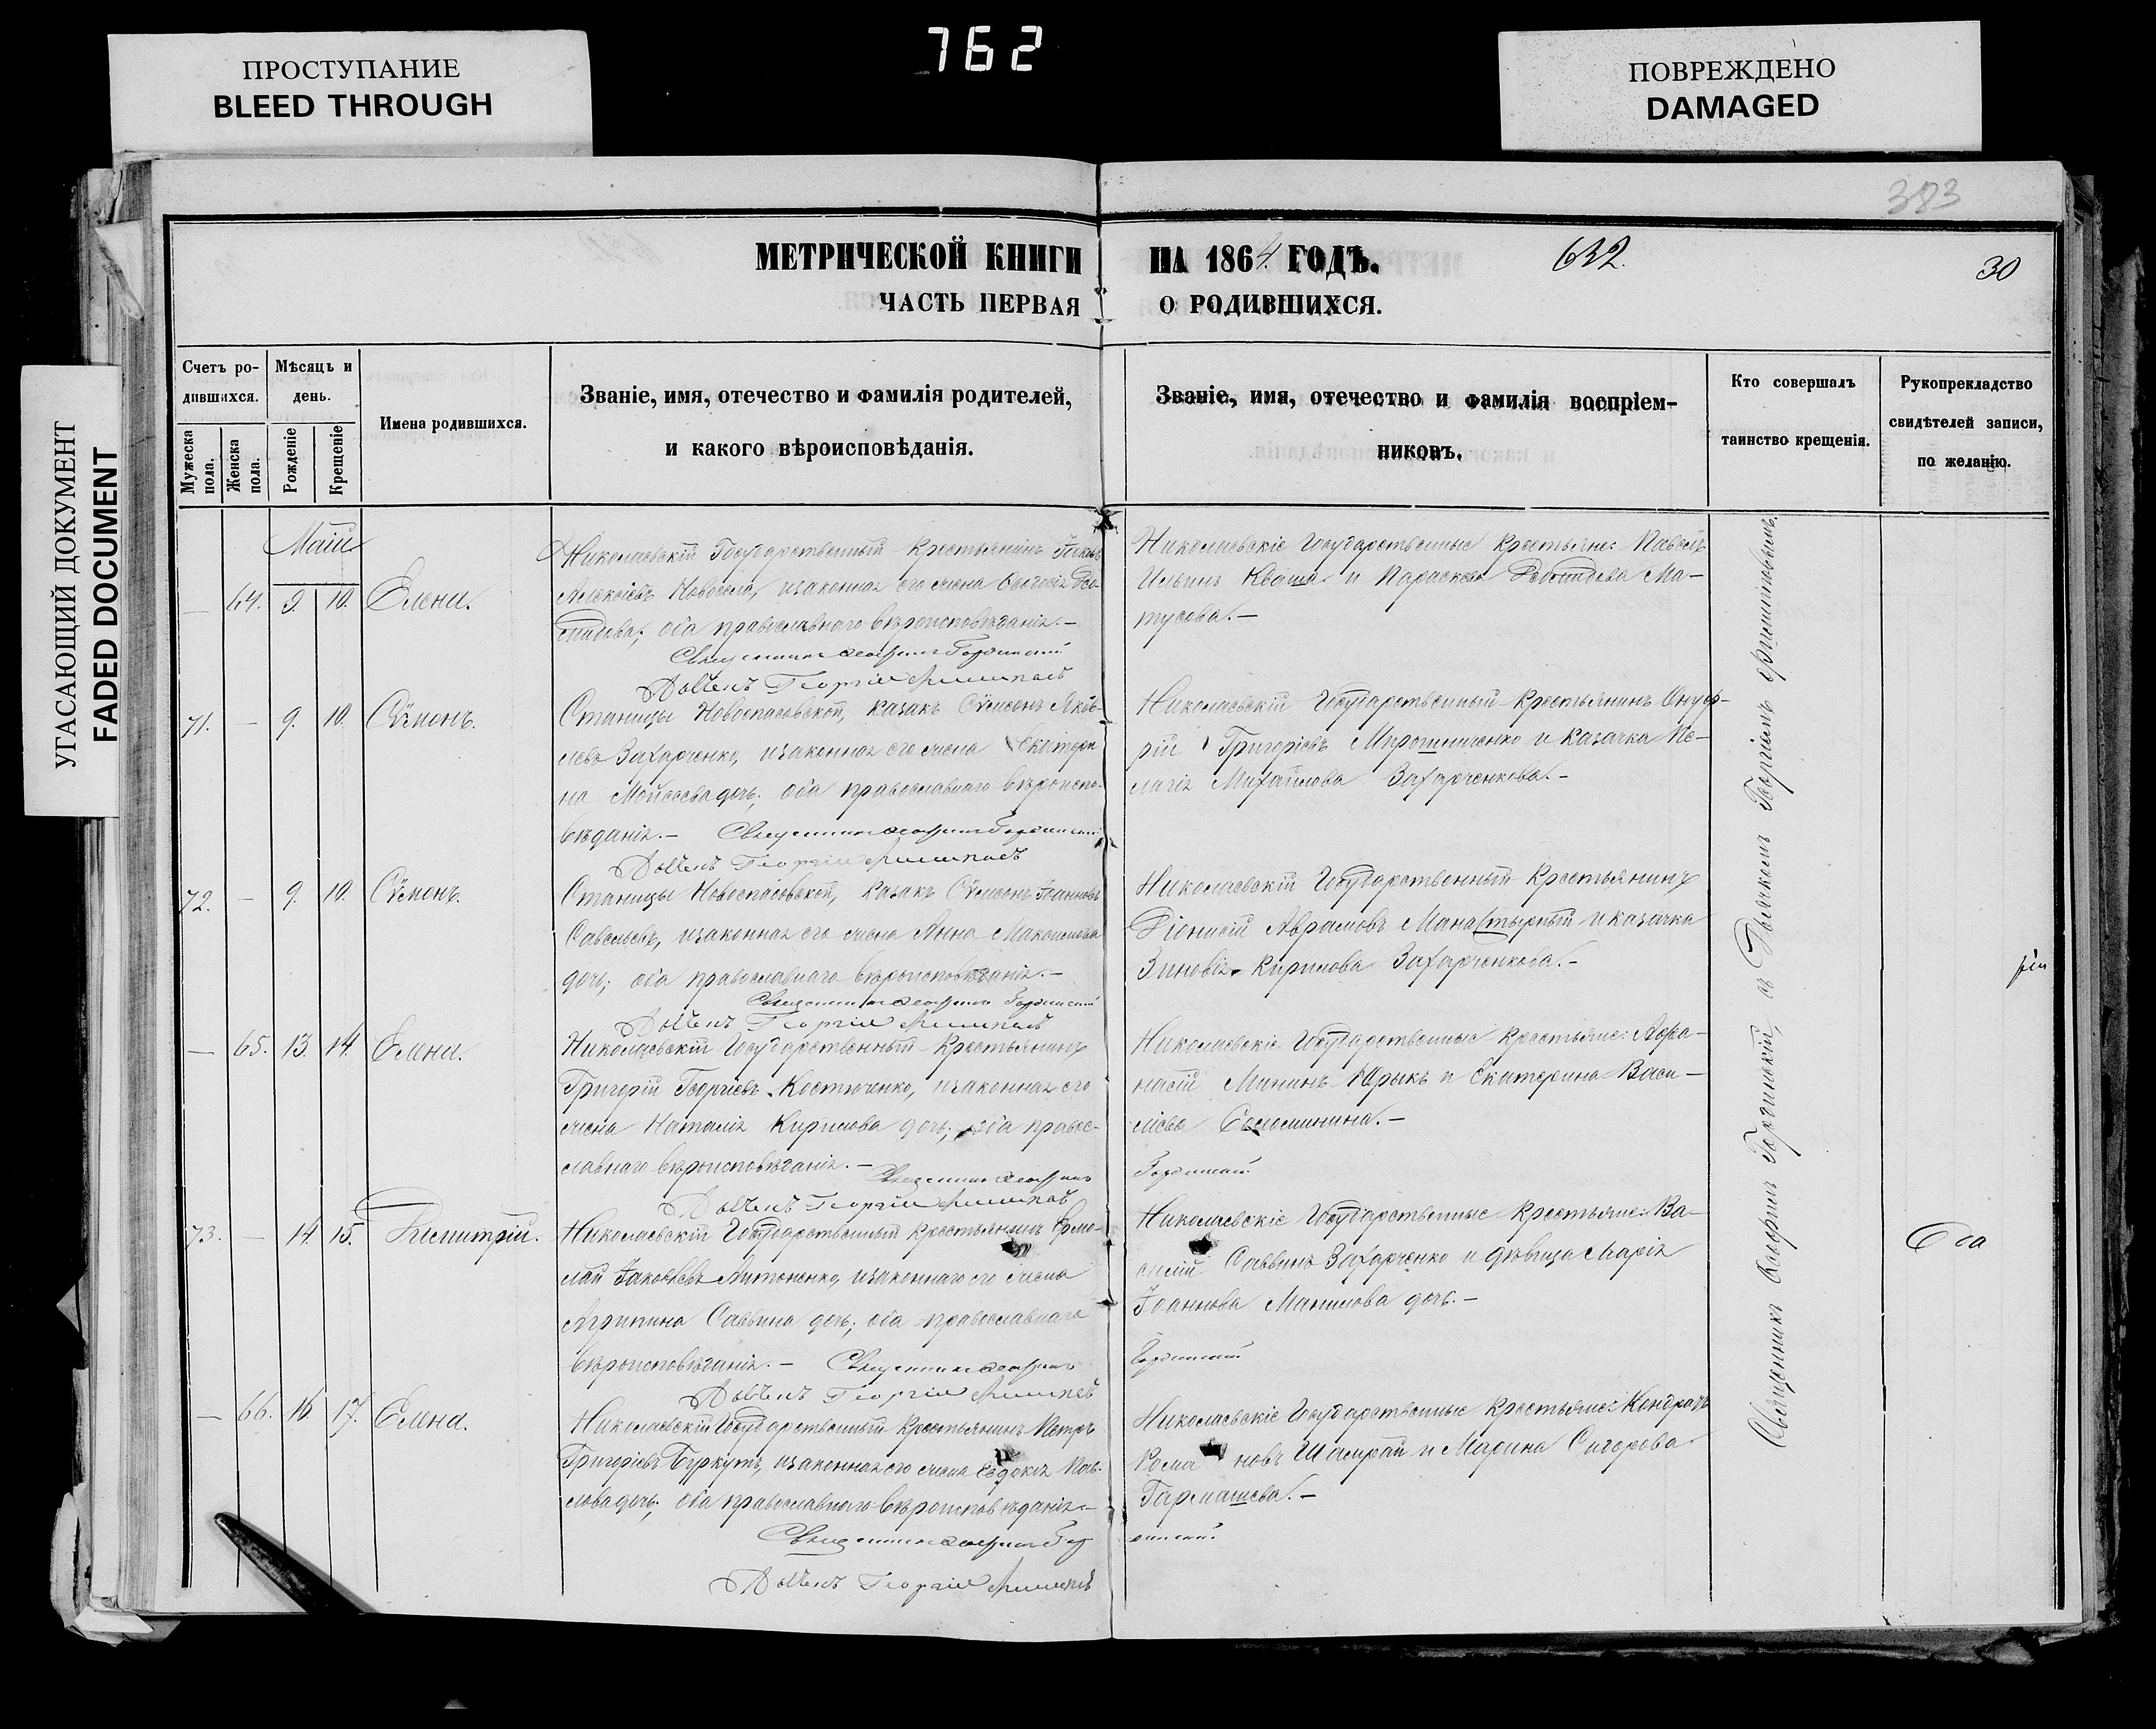 762
ПРОСТУПАНИЕ
BLEED THROUGH
ПОВРЕЖДЕНО
DAMAGED
УГАСАЮЩИЙ ДОКУМЕНТ
FADED DOCUMENT
383
МЕТРИЧЕСКОЙ КНИГИ НА 1864 ГОДЪ.
632.
30
ЧАСТЬ ПЕРВАЯ О РОДИВШИХСЯ.
Счетъ ро-
дившихся.
Мужеска пола.
Женска пола.
Мѣсяцъ и
день.
Рожденіе
Крещеніе
Имена родившихся.
Званіе, имя, отечество и фамилія родителей,
и какого вѣроисповѣданія.
Званіе, имя, отечество и фамилія воспріем-
никовъ.
Кто совершалъ
таинство крещенія.
Рукоприкладство
свидѣтелей записи,
по желанію.
Маій
— 64. 9. 10. Елена.
Николаевскій Государственный Крестьянинъ
Алексіевъ Новосела, и законная его жена
оба православнаго вѣроисповѣданія.—
Священникъ Гординскій
Дьяконъ Георгій
Николаевскіе Государственные Крестьяне: Павелъ
Ильинъ Кваша и Параскева Ма-
тусова.—
71. — 9. 10. Сѵмеонъ.
Станицы Новоспасовской, казакъ Сѵмеонъ Яков-
левъ Захарченко, и законная его жена Екатери-
на Мойсеева дочь; оба православнаго вѣроиспо-
вѣданія.— Священникъ Гординскій
Дьяконъ Георгій
Николаевскій Государственный Крестьянинъ Онуф-
рій Григоріевъ Мирошниченко и казачка Пе-
лагія Михайлова Захарченкова.—
72. — 9. 10. Сѵмеонъ.
Станицы Новоспасовской, казакъ Сѵмеонъ Іоанновъ
Савельевъ, и законная его жена Анна Максимова
дочь; оба православнаго вѣроисповѣданія.—
Священникъ Гординскій
Дьяконъ Георгій
Николаевскій Государственный Крестьянинъ
Діонисій Аврамовъ Манастырный и казачка
Зиновія Кирилова Захарченкова.—
— 65. 13. 14. Елена.
Николаевскій Государственный Крестьянинъ
Григорій Георгіевъ Костюченко, и законная его
жена Наталія Кирилова дочь; оба право-
славнаго вѣроисповѣданія.— Священникъ
Дьяконъ Георгій
Николаевскіе Государственные Крестьяне: Афа-
насій Мининъ Юрыкъ и Екатерина Васи-
ліева Соломинина.—
Гординскій
73. — 14 15. Димитрій.
Николаевскій Государственный Крестьянинъ Ермо-
лай Іаковлевъ Антоненко, и законная его жена
Агрипина Саввина дочь; оба православнаго
вѣроисповѣданія.— Священникъ
Дьяконъ Георгій
Николаевскіе Государственные Крестьяне: Ва-
силій Саввинъ Захарченко и дѣвица Марія
Іоаннова Манилова дочь.—
Гординскій
— 66. 16. 17. Елена.
Николаевскій Государственный Крестьянинъ Петръ
Григоріевъ Буркутъ, и законная его жена Евдокія Пав-
лова дочь; оба православнаго вѣроисповѣданія.—
Священникъ
Дьяконъ Георгій
Николаевскіе Государственные Крестьяне: Кондратъ
Романовъ Шамрай и Марина Сидорова
Гармашева.—
Священникъ Гординскій, съ Дьякономъ Георгіемъ